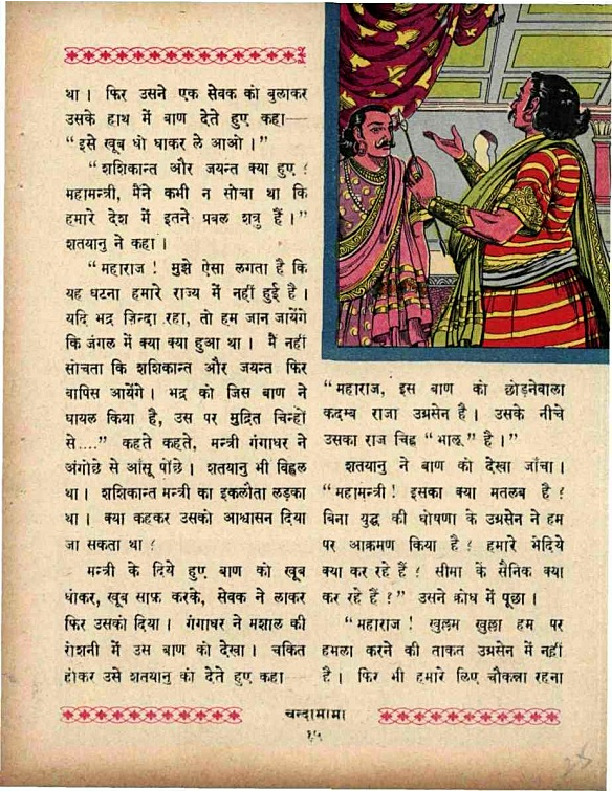 था। फिर उसने एक सेवक को बुलाकर
उसके हाथ में बाण देते हुए कहा—
“इसे खूब धो धाकर ले आओ।”
“शशिकान्त और जयन्त क्या हुए?
महामन्त्री, मैंने कभी न सोचा था कि
हमारे देश में इतने प्रबल शत्रु हैं।”
शतयानु ने कहा।
“महाराज! मुझे ऐसा लगता है कि
यह घटना हमारे राज्य में नहीं हुई है।
यदि भद्र ज़िन्दा रहा, तो हम जान जायेंगे
कि जंगल में क्या क्या हुआ था। मैं नहीं
सोचता कि शशिकान्त और जयन्त फिर
वापिस आयेंगे। भद्र को जिस बाण ने
घायल किया है, उस पर मुद्रित चिन्हों
से....” कहते कहते, मन्त्री गंगाधर ने
अंगोछे से आँसू पोंछे। शतयानु भी विह्वल
था। शशिकान्त मन्त्री का इकलौता लड़का
था। क्या कहकर उसको आश्वासन दिया
जा सकता था?
मन्त्री के दिये हुए बाण को खूब
धोकर, खूब साफ़ करके, सेवक ने लाकर
फिर उसको दिया। गंगाधर ने मशाल की
रोशनी में उस बाण को देखा। चकित
होकर उसे शतयानु को देते हुए कहा—
“महाराज, इस बाण को छोड़नेवाला
कदम्ब राजा उग्रसेन है। उसके नीचे
उसका राज चिह्न “भालू” है।”
शतयानु ने बाण को देखा जाँचा।
“महामन्त्री! इसका क्या मतलब है?
बिना युद्ध की घोषणा के उग्रसेन ने हम
पर आक्रमण किया है? हमारे भेदिये
क्या कर रहे हैं? सीमा के सैनिक क्या
कर रहे हैं?” उसने क्रोध में पूछा।
“महाराज! खुल्लम खुल्ला हम पर
हमला करने की ताकत उग्रसेन में नहीं
है। फिर भी हमारे लिए चौकन्ना रहना
चन्दामामा
१५